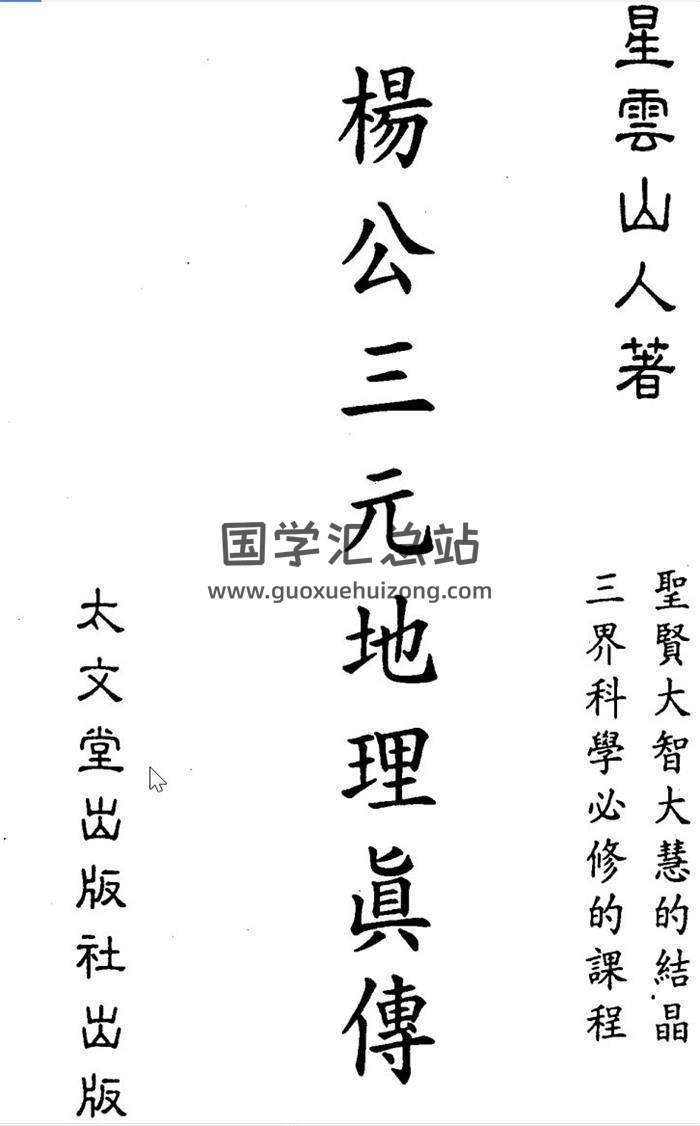 星雲山人著
聖賢大智大慧的結晶
三界科學必修的課程
楊公三元地理眞傳
国学汇总站
www.guoxuehuizong.com
太文堂出版社出版